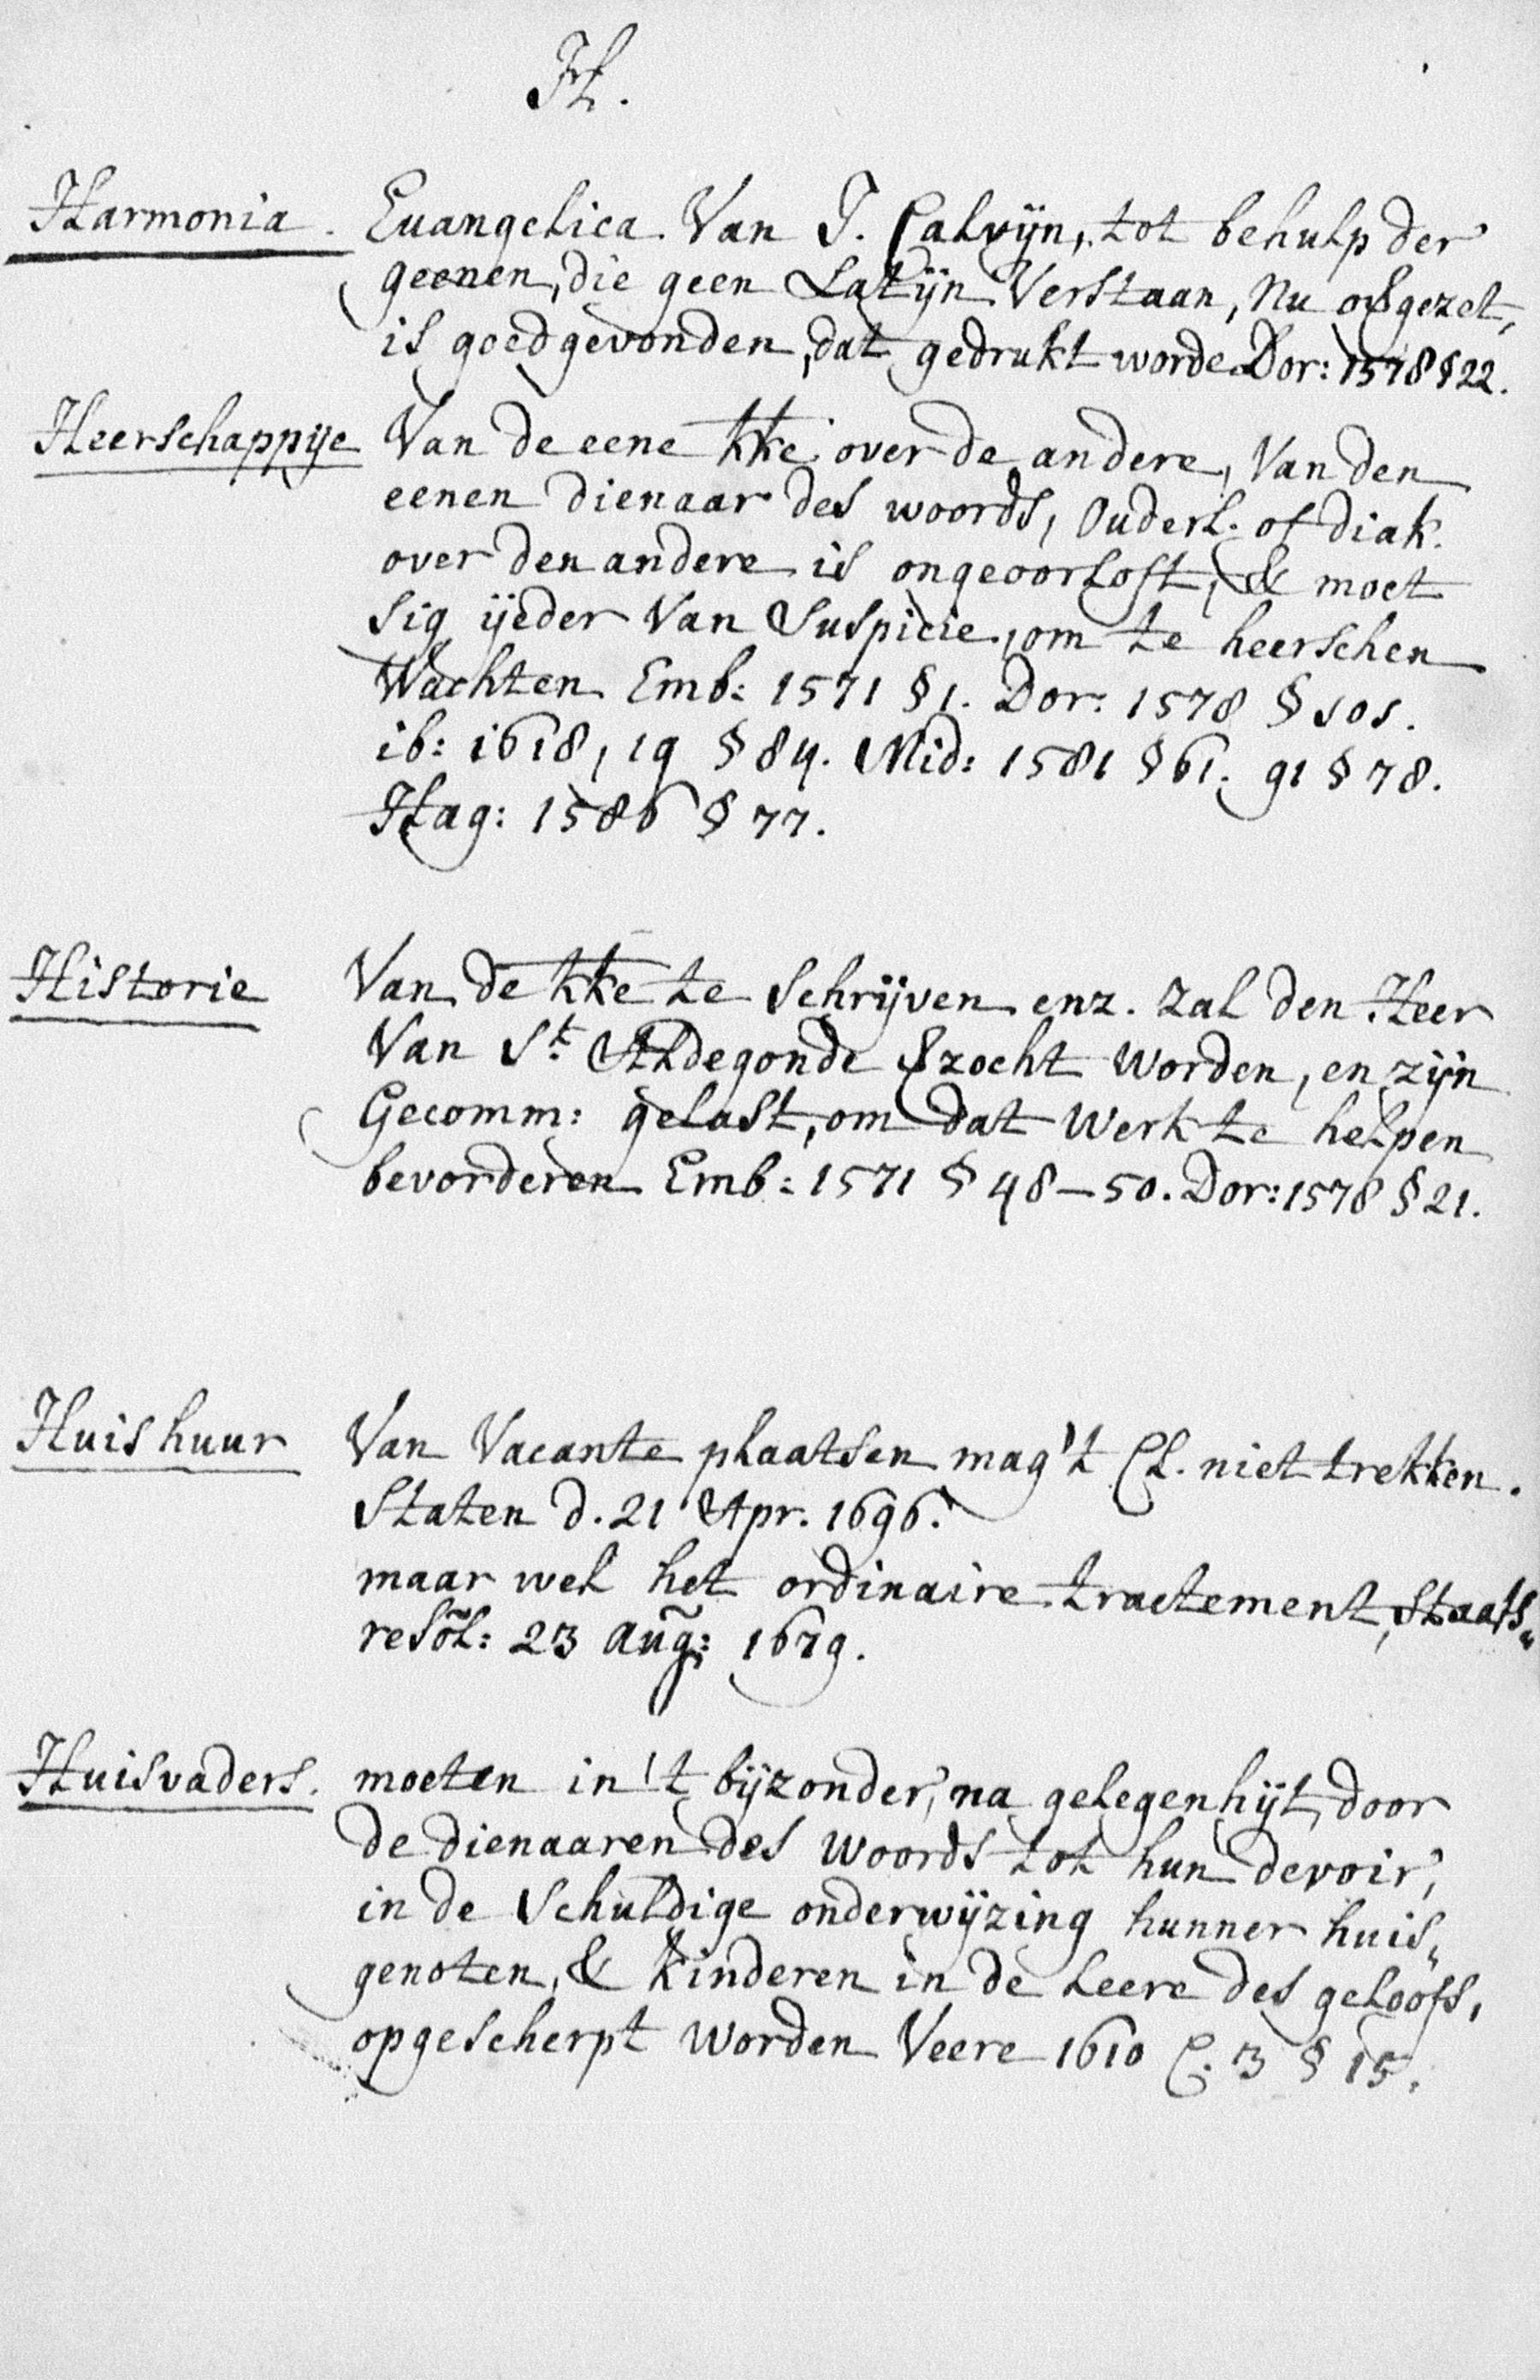 H.
Harmonia. Euangelica Van J. Calvijn, tot behulp der
geenen, die geen Latijn Verstaan, Nu gezet,
is goedgevonden, dat gedrukt worde Dor: 1578 § 22.
Heerschappije Van de eene kke over de andere, Van den
eenen dienaar des woords, Ouderl. of diak.
over den andere is ongeoorloft, & moet
sig ijeder Van Suspicie, om te heerschen
Wachten Emb: 1571 § 1. Dor: 1578 § 101.
ib: 1618, 19 § 84. Mid: 1581 § 61. 91 § 78.
Hag: 1586 § 77.
Historie Van de kke te schrijven enz. zal den Heer
Van St. Aldegonde zocht Worden, en zijn
Gecomm: gelast, om dat Werk te helpen
bevorderen Emb: 1571 § 48-50. Dor: 1578 § 21.
Huishuur Van Vacante plaatsen mag 't Cl. niet trekken.
Staten d. 21 Apr. 1696.
maar wel het ordinaire tractement, Staats„
resol: 23 Aug: 1679.
Huisvaders. moeten in 't bijzonder, na gelegenhijt, door
de dienaaren des Woords tot hun devoir,
in de Schuldige onderwijzing hunner huis„
genoten, & kinderen in de leere des geloofs,
opgescherpt worden Veere 1610 C. 3 § 15.